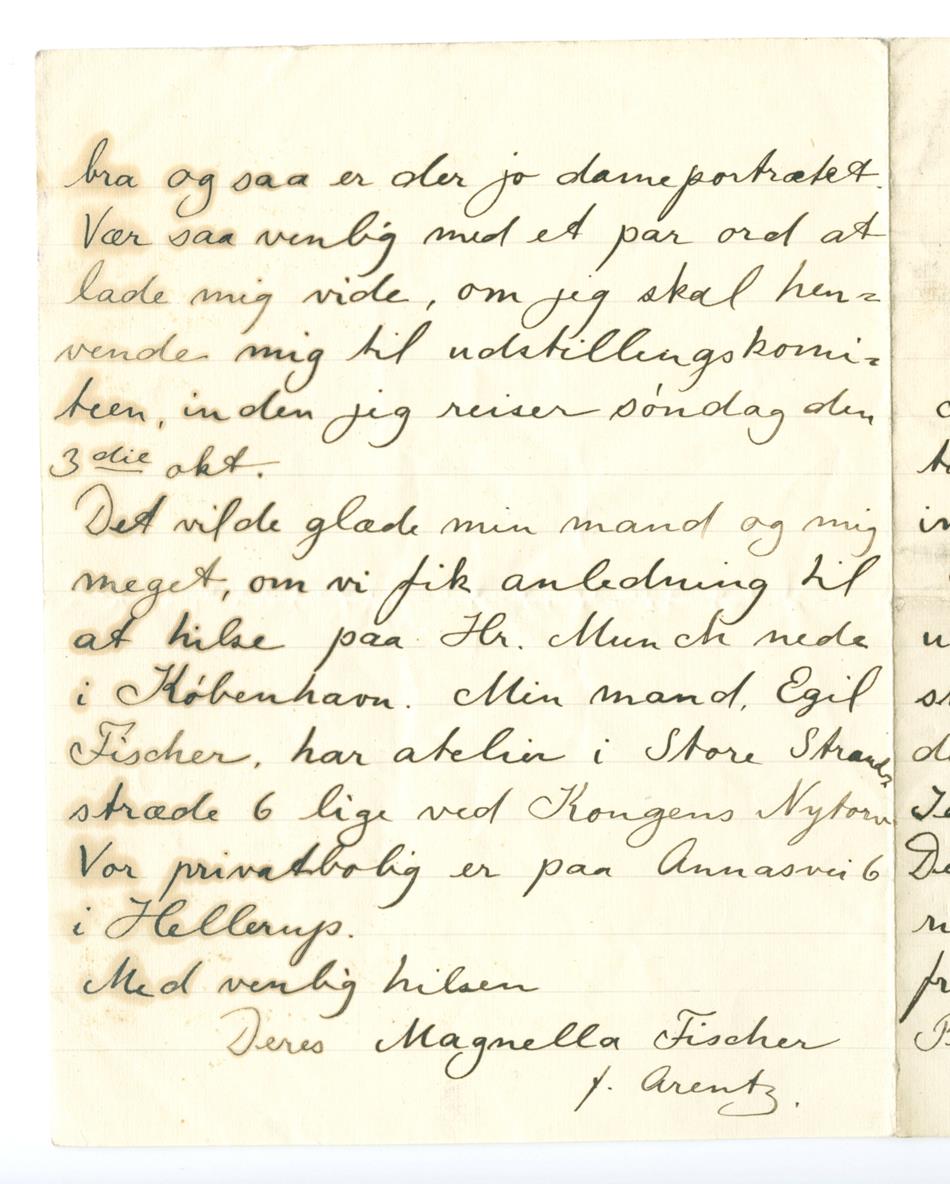 bra og saa er der jo dameportrætet.
Vær saa venlig med et par ord at
lade mig vide, om jeg skal hen=
vende mig til udstillingskomi=
teen, inden jeg reiser søndag den
3die okt.
Det vilde glæde min mand og mig
meget, om vi fik anledning til
at hilse paa Hr. Munch nede
i København. Min mand, Egil
Fischer, har atelier i Store Strand=
stræde 6 lige ved Kongens Nytorv
Vor privatbolig er paa Annasvei 6
i Hellerup.
Med venlig hilsen
Deres Magnella Fischer
f. Arentz.